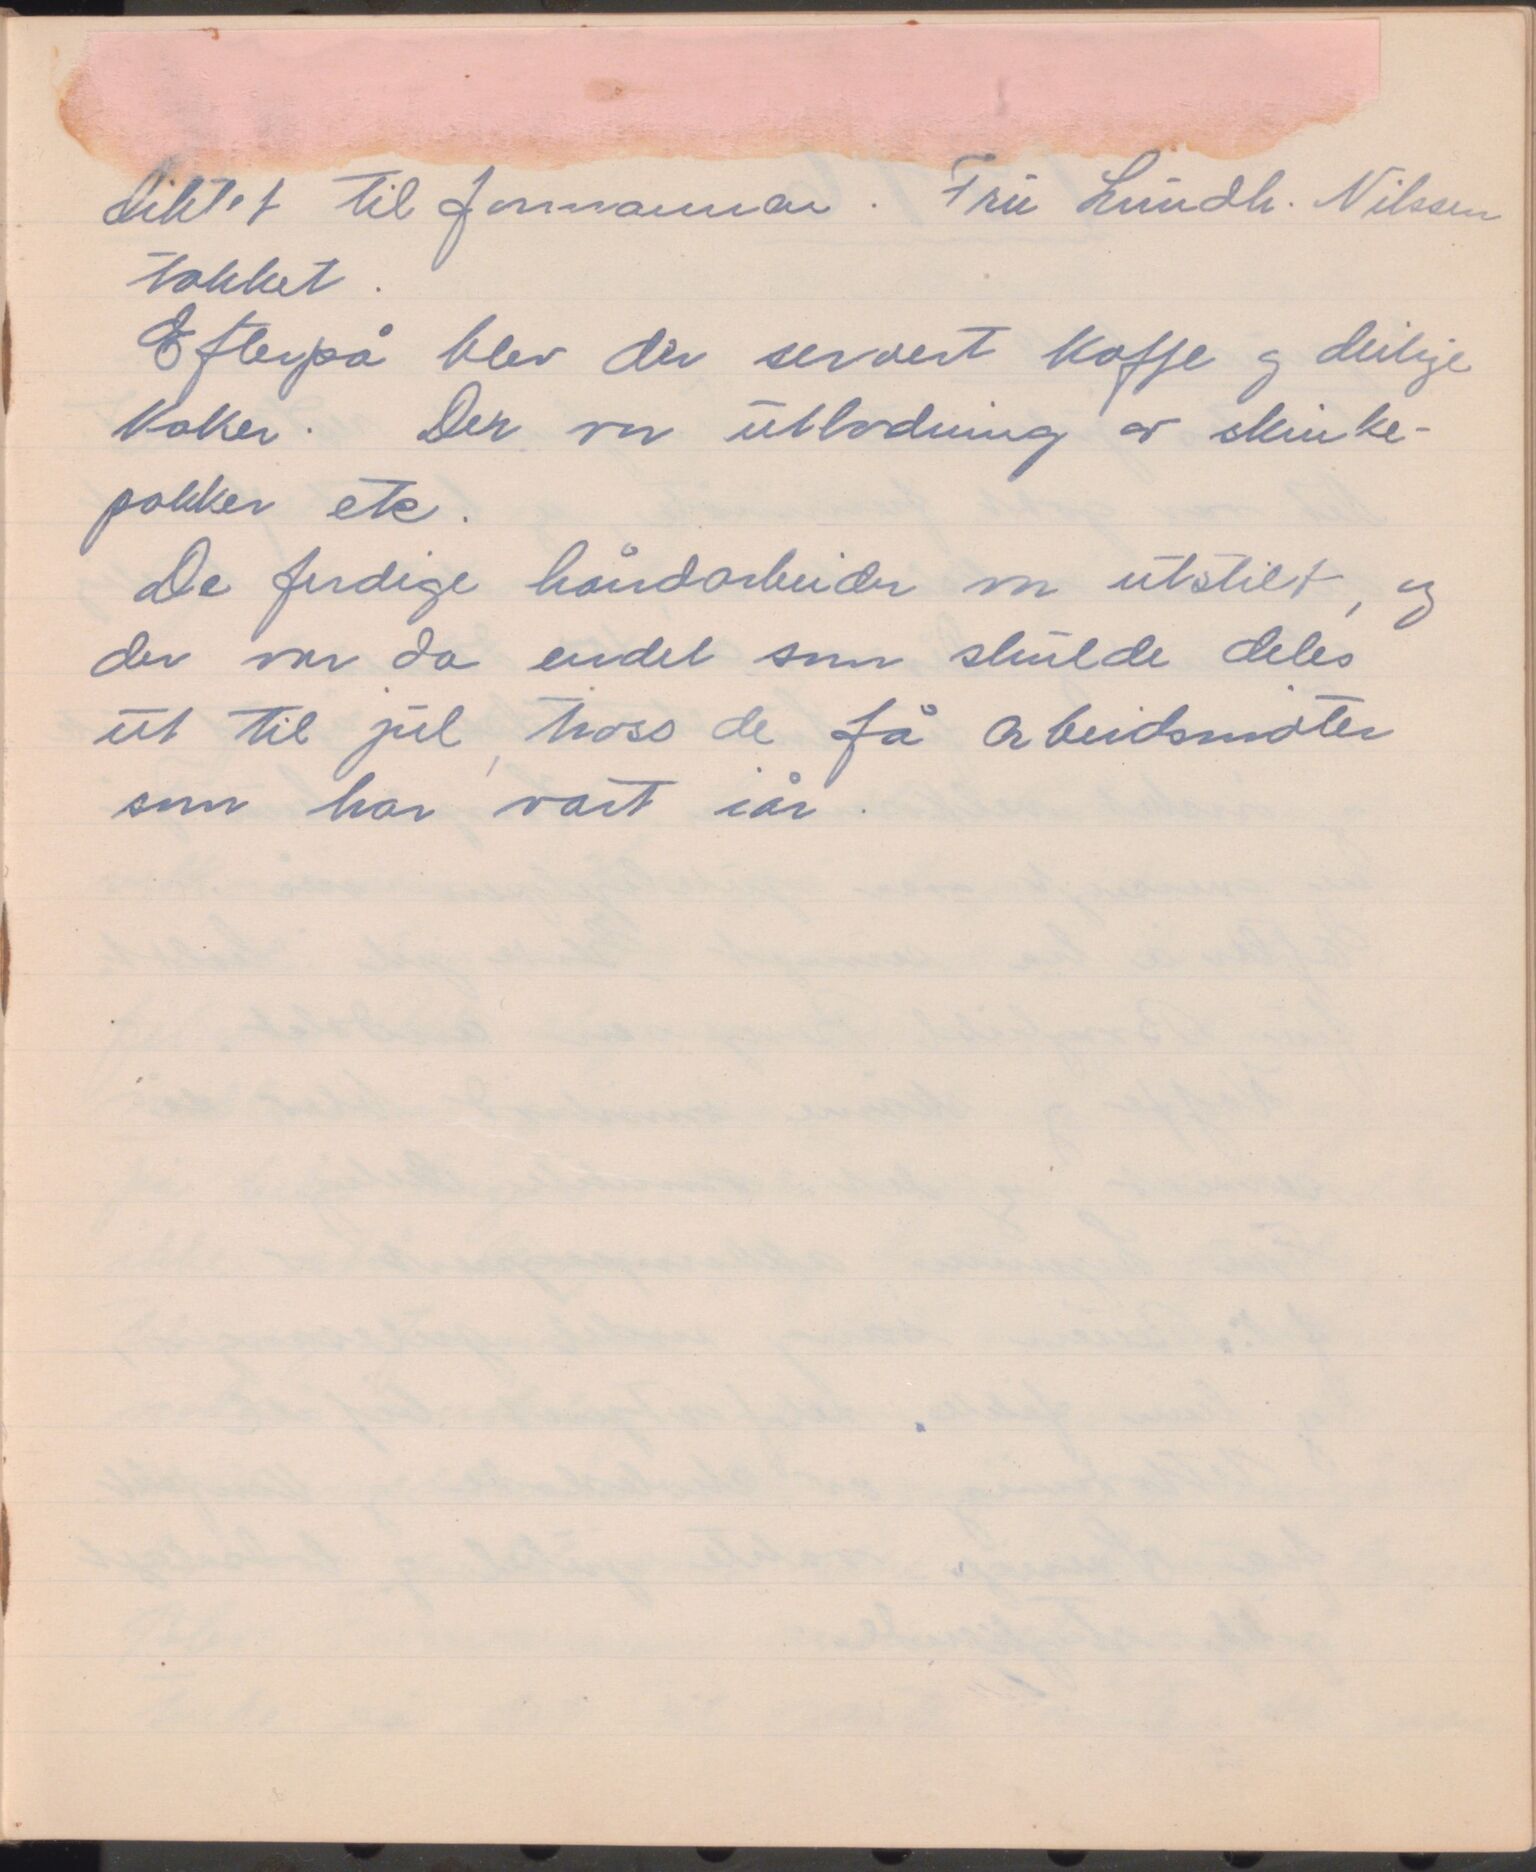 diktet til formannen. Frü Lündh. Nilssen
takket.
Efterpå blev der servert kaffe og deilige
kaker. Der var ütlodning av skinke-
pakker etc.
De ferdige håndarbeider var ütstilt, og
der var da endel som skülde deles
üt til jül, tross de få arbeidsmøter
som har vært iår.